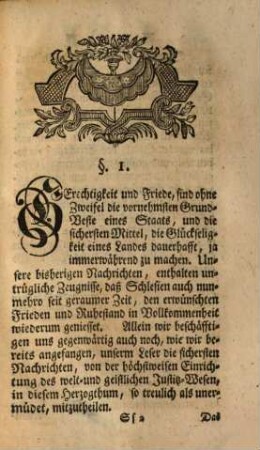 §. 1.
GErechtigkeit und Friede, sind ohne
Zweifel die vornehmsten Grund-
Veste eines Staats, und die
sichersten Mittel, die Glückselig-
keit eines Landes dauerhafft, ja
immerwährend zu machen. Un-
sere bisherigen Nachrichten, enthalten un-
trügliche Zeugnisse, daß Schlesien auch nun-
mehro seit geraumer Zeit, den erwünschten
Frieden und Ruhestand in Vollkommenheit
wiederum geniesset. Allein wir beschäffti-
gen uns gegenwärtig auch noch, wie wir be-
reits angefangen, unserm Leser die sichersten
Nachrichten, von der höchstweisen Einrich-
tung des welt- und geistlichen Justitz-Wesen,
in diesem Herzogthum, so treulich als uner-
müdet, mitzutheilen.
Ss 2 Das